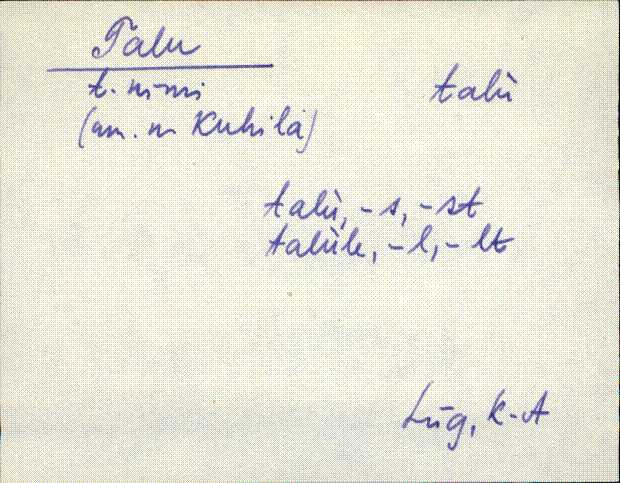 Talu
t. nimi
talù
(am. n Kuhila)
talù, -s, -st
talùle, -l, -lt
Lüg, K-A